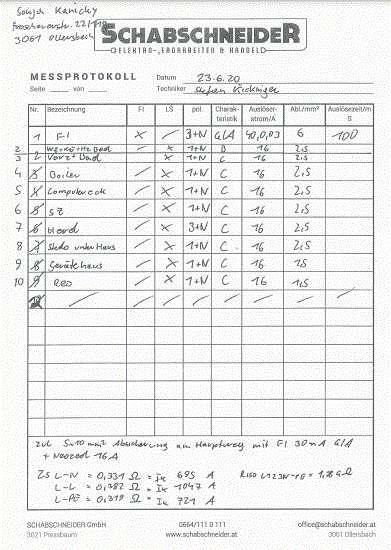 Sonja Kanicky
22/1/10
3061 Ollersbach
SCHABSCHNEIDER
ELEKTRO-, ERDARBEITEN & HANDEL
MESSPROTOKOLL Datum 23.6.20
Seite von Techniker Stefan
Nr. Bezeichnung FI LS pol. Charak-teristik Auslöser-strom/A Abl./mm² Auslösezeit/ms
1 FI X / 3+N G/A 40,0,03 6 100
2 X 1+N B 16 2,5
3 Vorz + Bad X 1+N C 16 2,5
4 Boiler / X 1+N C 16 2,5
5 Computereck / X 1+N C 16 2,5
6 SZ / X 1+N C 16 2,5
7 Herd / X 3+N C 16 2,5
8 Stedo unter Haus / X 1+N C 16 2,5
9 Gerätehaus / X 1+N C 16 1,5
10 Res / X 1+N C 16 1,5
Zul 5x10 mm² Absicherung am Hauptweg mit FI 30mA G/A
+ Neozed 16A
Zs L-N = 0,331 Ω = Ik 695 A
L-L = 0,382 Ω = Ik 1047 A
L-PE = 0,319 Ω = Ik 721 A
Riso L123N-PE = 1,18 GΩ
SCHABSCHNEIDER GmbH 0664/111 8 111 office@schabschneider.at
3021 Pressbaum www.schabschneider.at 3061 Ollersbach